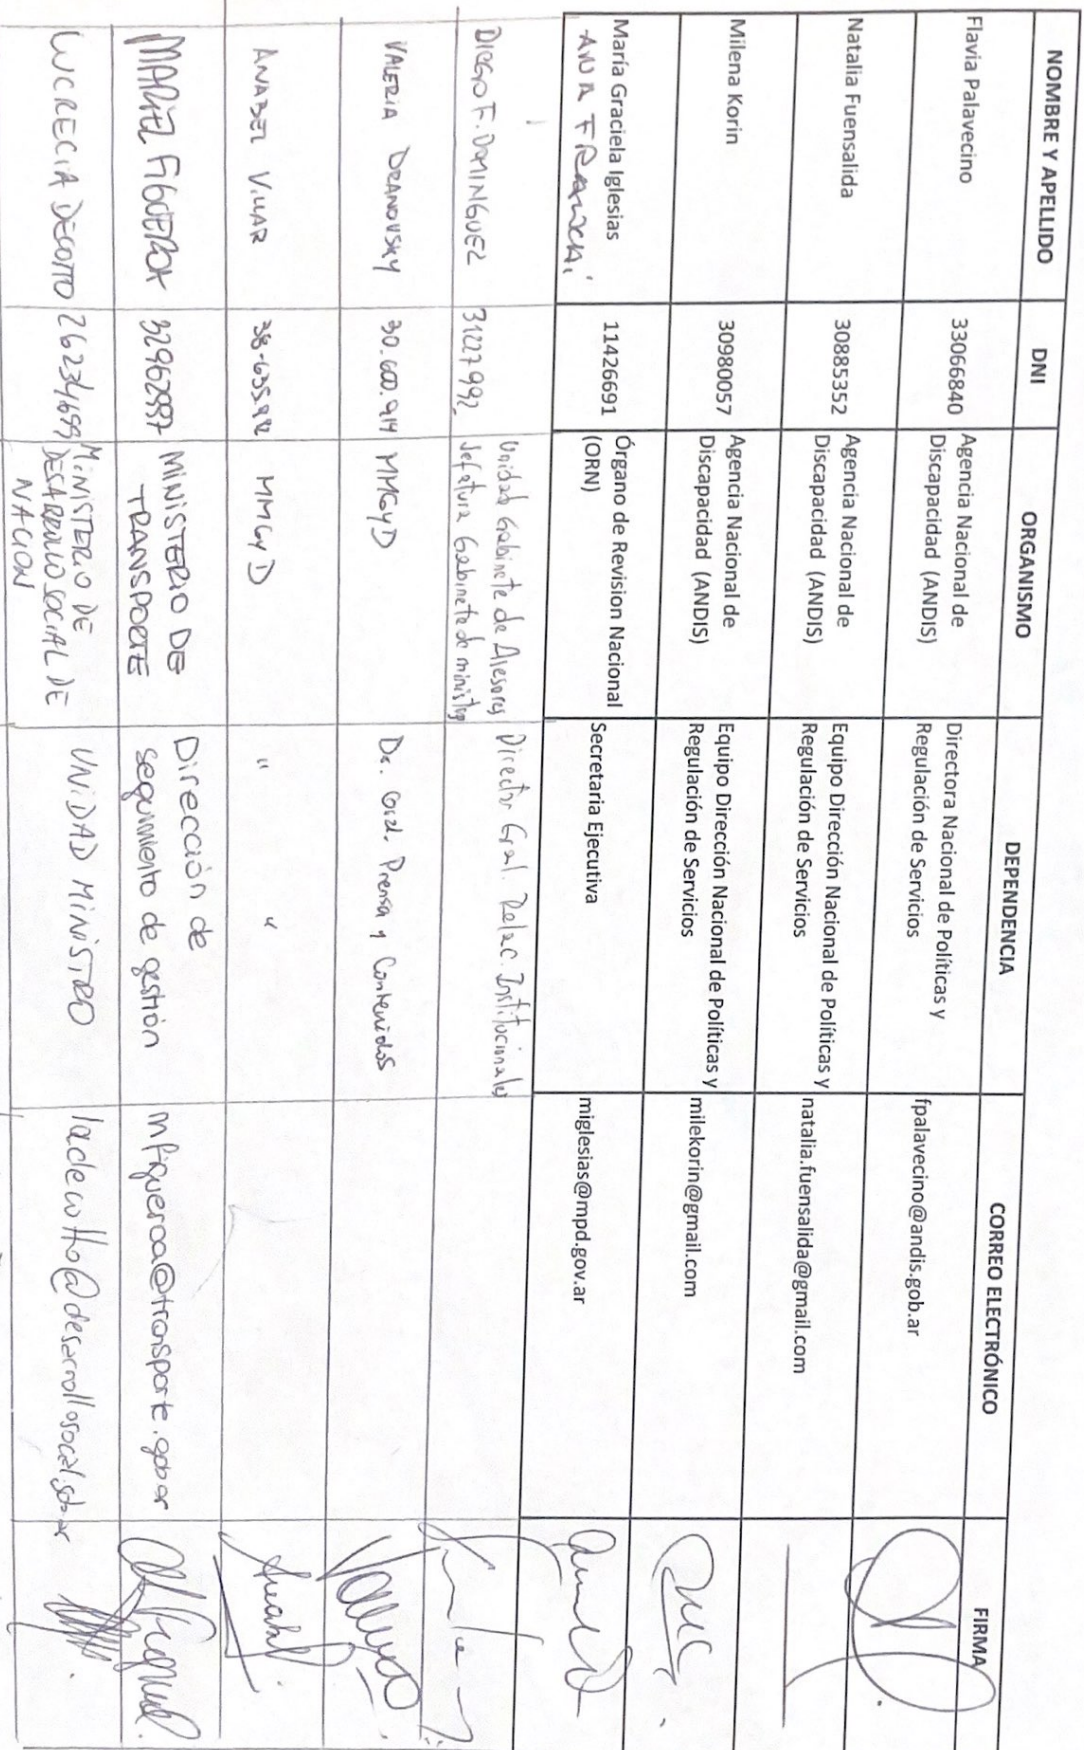 NOMBRE Y APELLIDO DNI ORGANISMO DEPENDENCIA CORREO ELECTRÓNICO FIRMA
Flavia Palavecino 33066840 Agencia Nacional de Discapacidad (ANDIS) Directora Nacional de Políticas y Regulación de Servicios fpalavecino@andis.gob.ar
Natalia Fuensalida 30885352 Agencia Nacional de Discapacidad (ANDIS) Equipo Dirección Nacional de Políticas y Regulación de Servicios natalia.fuensalida@gmail.com
Milena Korin 30980057 Agencia Nacional de Discapacidad (ANDIS) Equipo Dirección Nacional de Políticas y Regulación de Servicios milekorin@gmail.com
María Graciela Iglesias 11426691 Órgano de Revision Nacional (ORN) Secretaria Ejecutiva miglesias@mpd.gov.ar
ANA
DIEGO F. DOMINGUEZ 31227992 Unidad Gabinete de Asesores Jefatura Gabinete de ministros Director Gral. Relac. Institucionales
VALERIA DRANOVSKY 30.600.914 MMGyD Dir. Gral. Prensa y Contenidos
ANABEL VILLAR MMGyD " "
MARIEL FIGUEROA 32962997 MINISTERIO DE TRANSPORTE Dirección de seguimiento de gestión mfigueroa@transporte.gob.ar
LUCRECIA DECOTTO 26234699 MINISTERIO DE DESARROLLO SOCIAL DE NACION UNIDAD MINISTRO